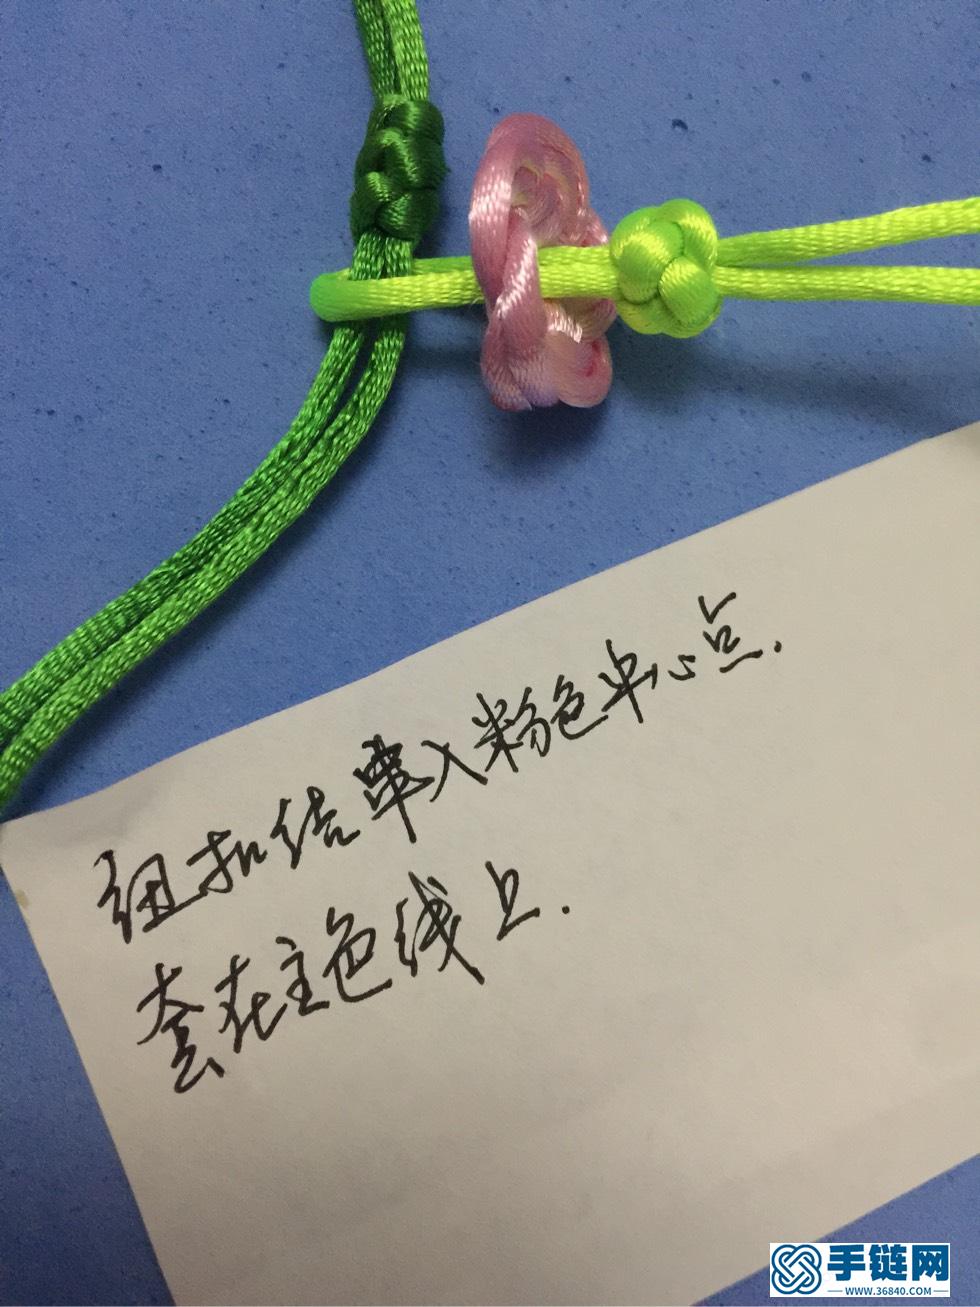 纽扣结串入粉色中心点.
套在主色线上.
手链网
WWW.36840.COM